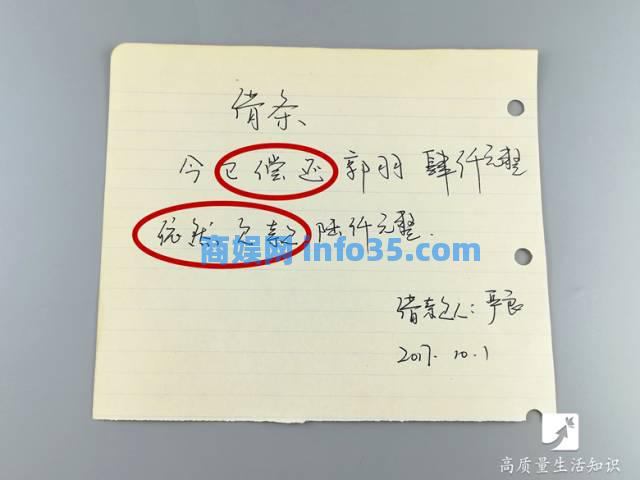 借条
今已偿还郭羽肆仟元整
依然欠款陆仟元整.
商娱网 info35.com
借款人:严良
2017.10.1
高质量生活知识